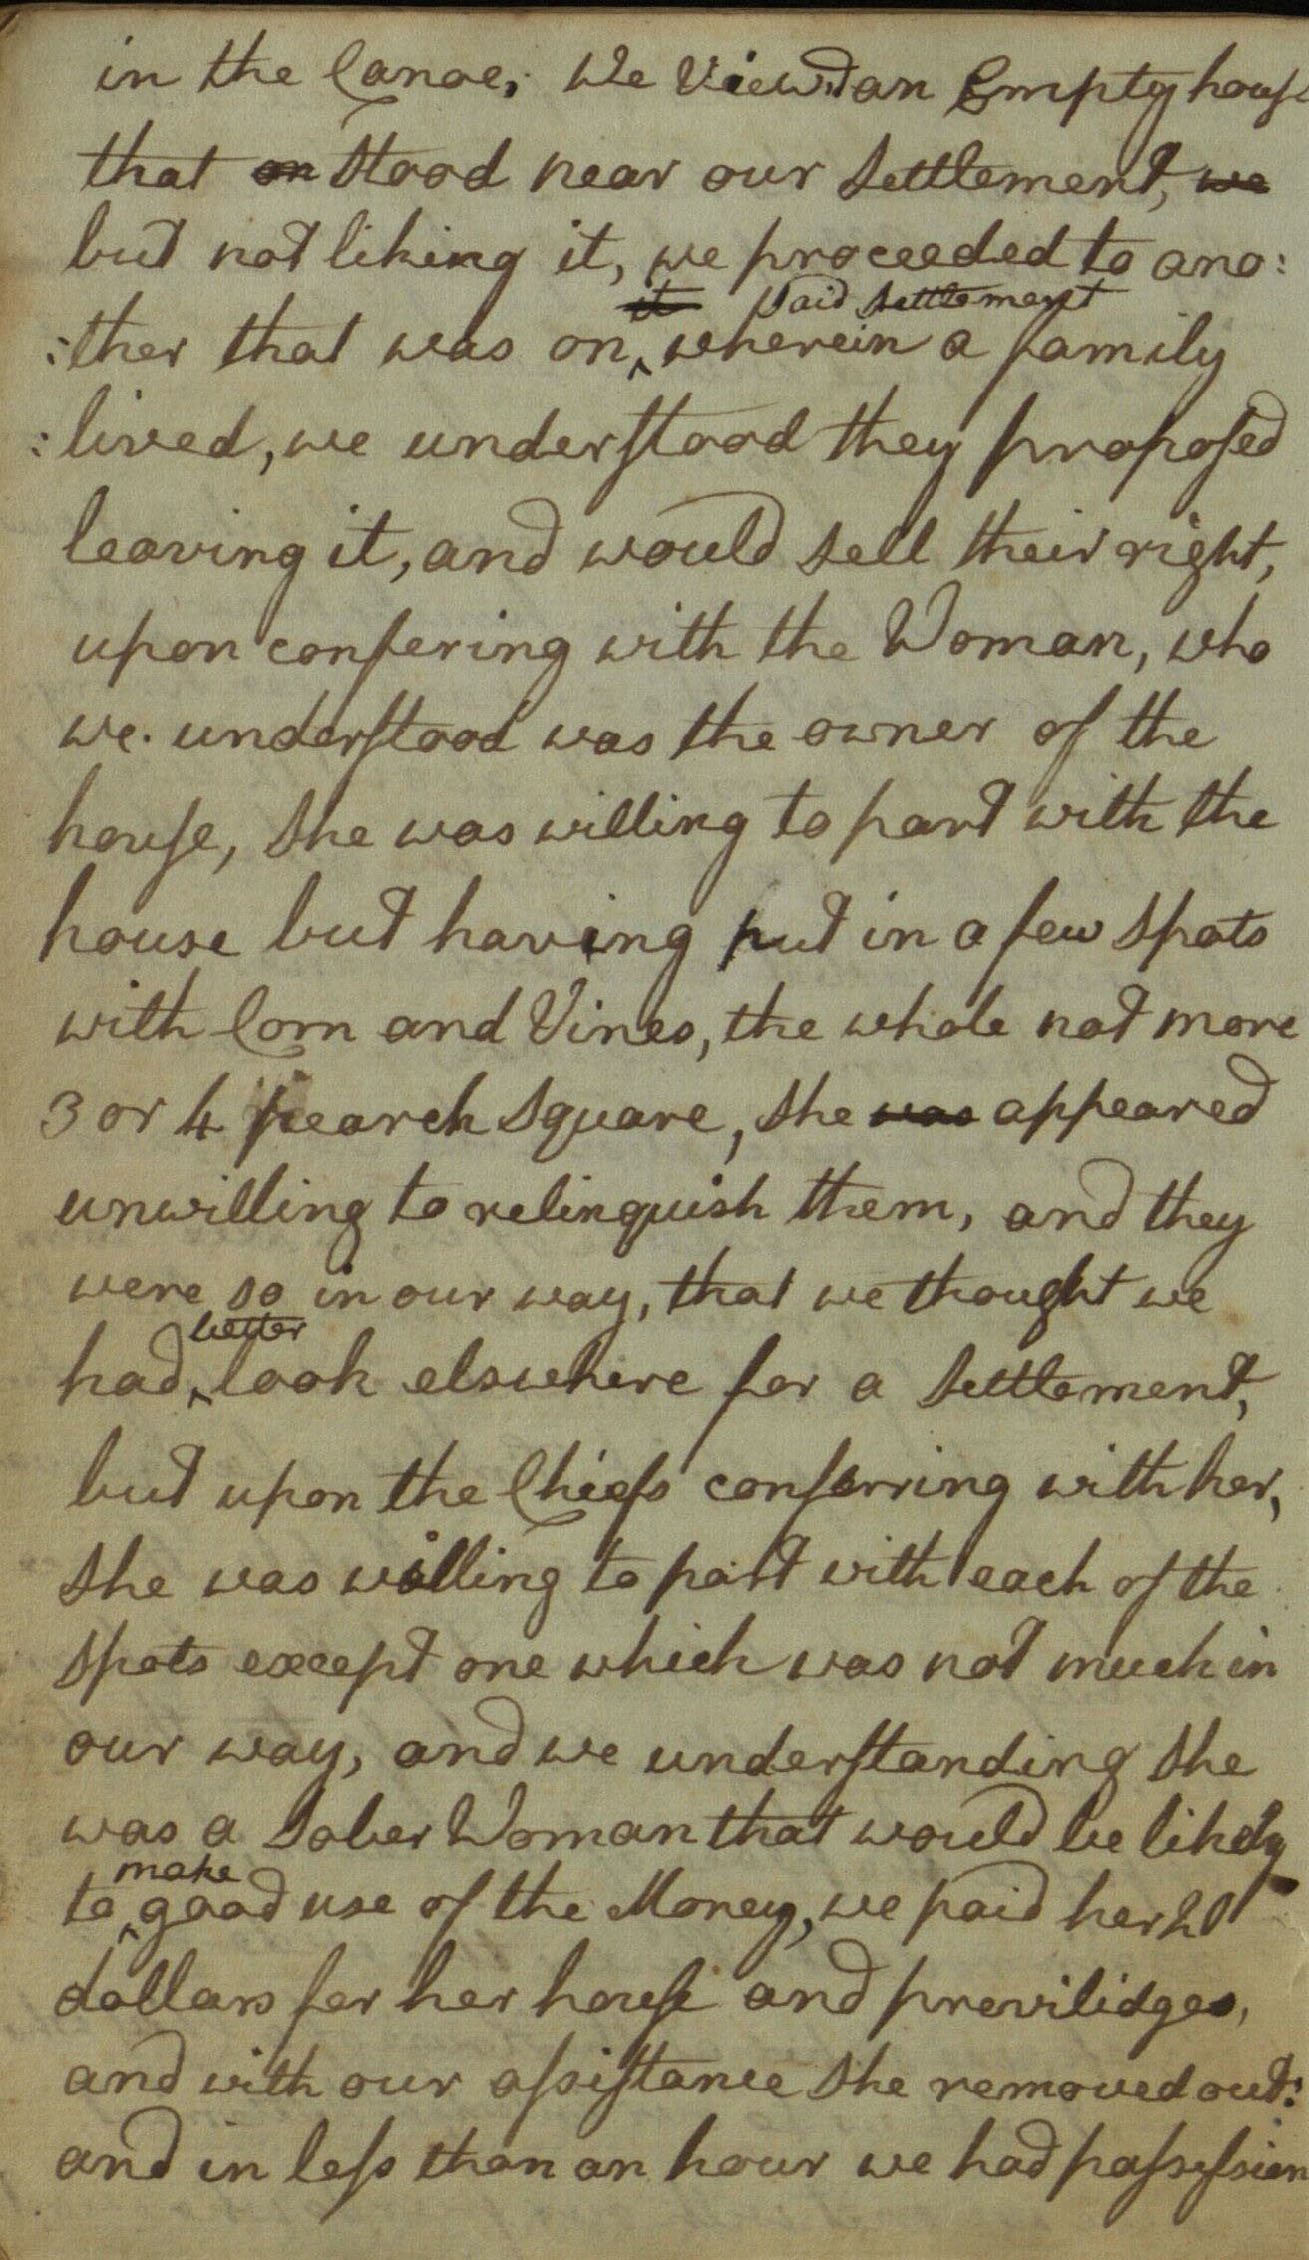 in the Canoe; We View'd an Empty house
that on stood near our Settlement, we
but not liking it, we proceeded to ano:
it said Settlement
:ther that was on ‸ wherein a family
:lived, we understood they proposed
leaving it, and would sell their right,
upon confering with the Woman, who
we understood was the owner of the
house, she was willing to part with the
house but having put in a few spots
with Corn and Vines, the whole not more
3 or 4 pearch square, she was appeared
unwilling to relinquish them, and they
were so in our way, that we thought we
better
had ‸ look elswhere for a Settlement,
but upon the Chiefs conferring with her,
she was willing to part with each of the
spots except one which was not much in
our way, and we understanding she
was a sober Woman that would be likely
make
to ‸ good use of the Money, we paid her
dollars for her house and previlidges,
and with our assistance she removed out:
and in less than an hour we had possession